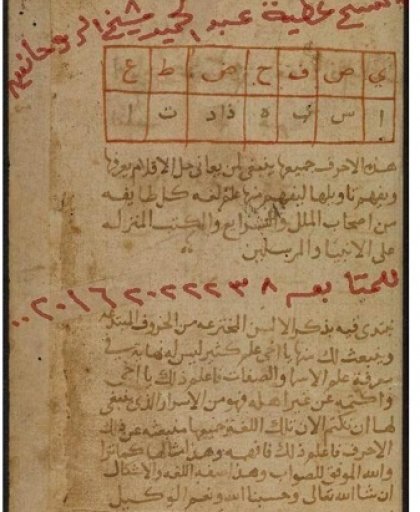 الشيخ عطية عبد الحميد شيخ الروحانيين
ي ص ف ح ض ط ع
ا س ك ه ذاد ت ا
هذه الاحرف جميعها ينبغي لمن يعاني حل الاقلام
ويفهم تاويلها ليفهم منها كل طايفه
من اصحاب الملل والشرايع والكتب المنزله
على الانبيا والمرسلين
للمتابعه ٠٠٢٠١٦٢٠٢٢٢٣٨
يبتدى فيه بذكر الالسن المخترعه من الحروف
وينبعث لك منها يا اخي علم كثير ليس له نهايه في
معرفة علم الاسما والصفات فاعلم ذلك يا اخي
واكتمه عن غير اهله فهو من الاسرار الذي ينبغي
لها ان تكتم الان تلك اللغة جميعها منبعثه عن تلك
الاحرف فاعلم ذلك فافهمه وهذا مثالها كما ترا
والله الموفق للصواب وهذا صفه اللغه والاشكال
ان شا الله تعالى وحسبنا الله ونعم الوكيل